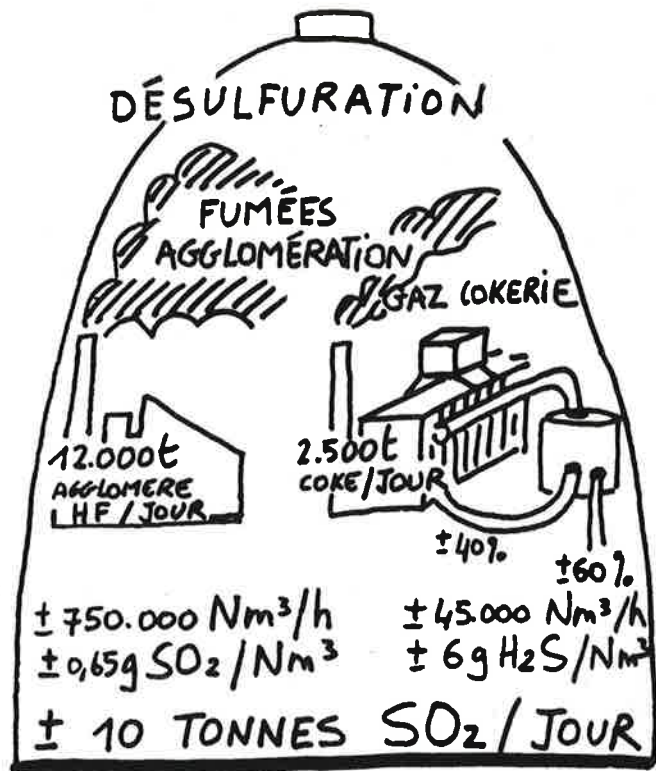 DÉSULFURATION
FUMÉES
AGGLOMÉRATION
GAZ COKERIE
12.000t
AGGLOMERE
HF / JOUR
2.500t
COKE/JOUR
±40%
±60%
±750.000 Nm³/h
±0,65g SO₂/Nm³
±45.000 Nm³/h
±6g H₂S/Nm³
± 10 TONNES SO₂/JOUR